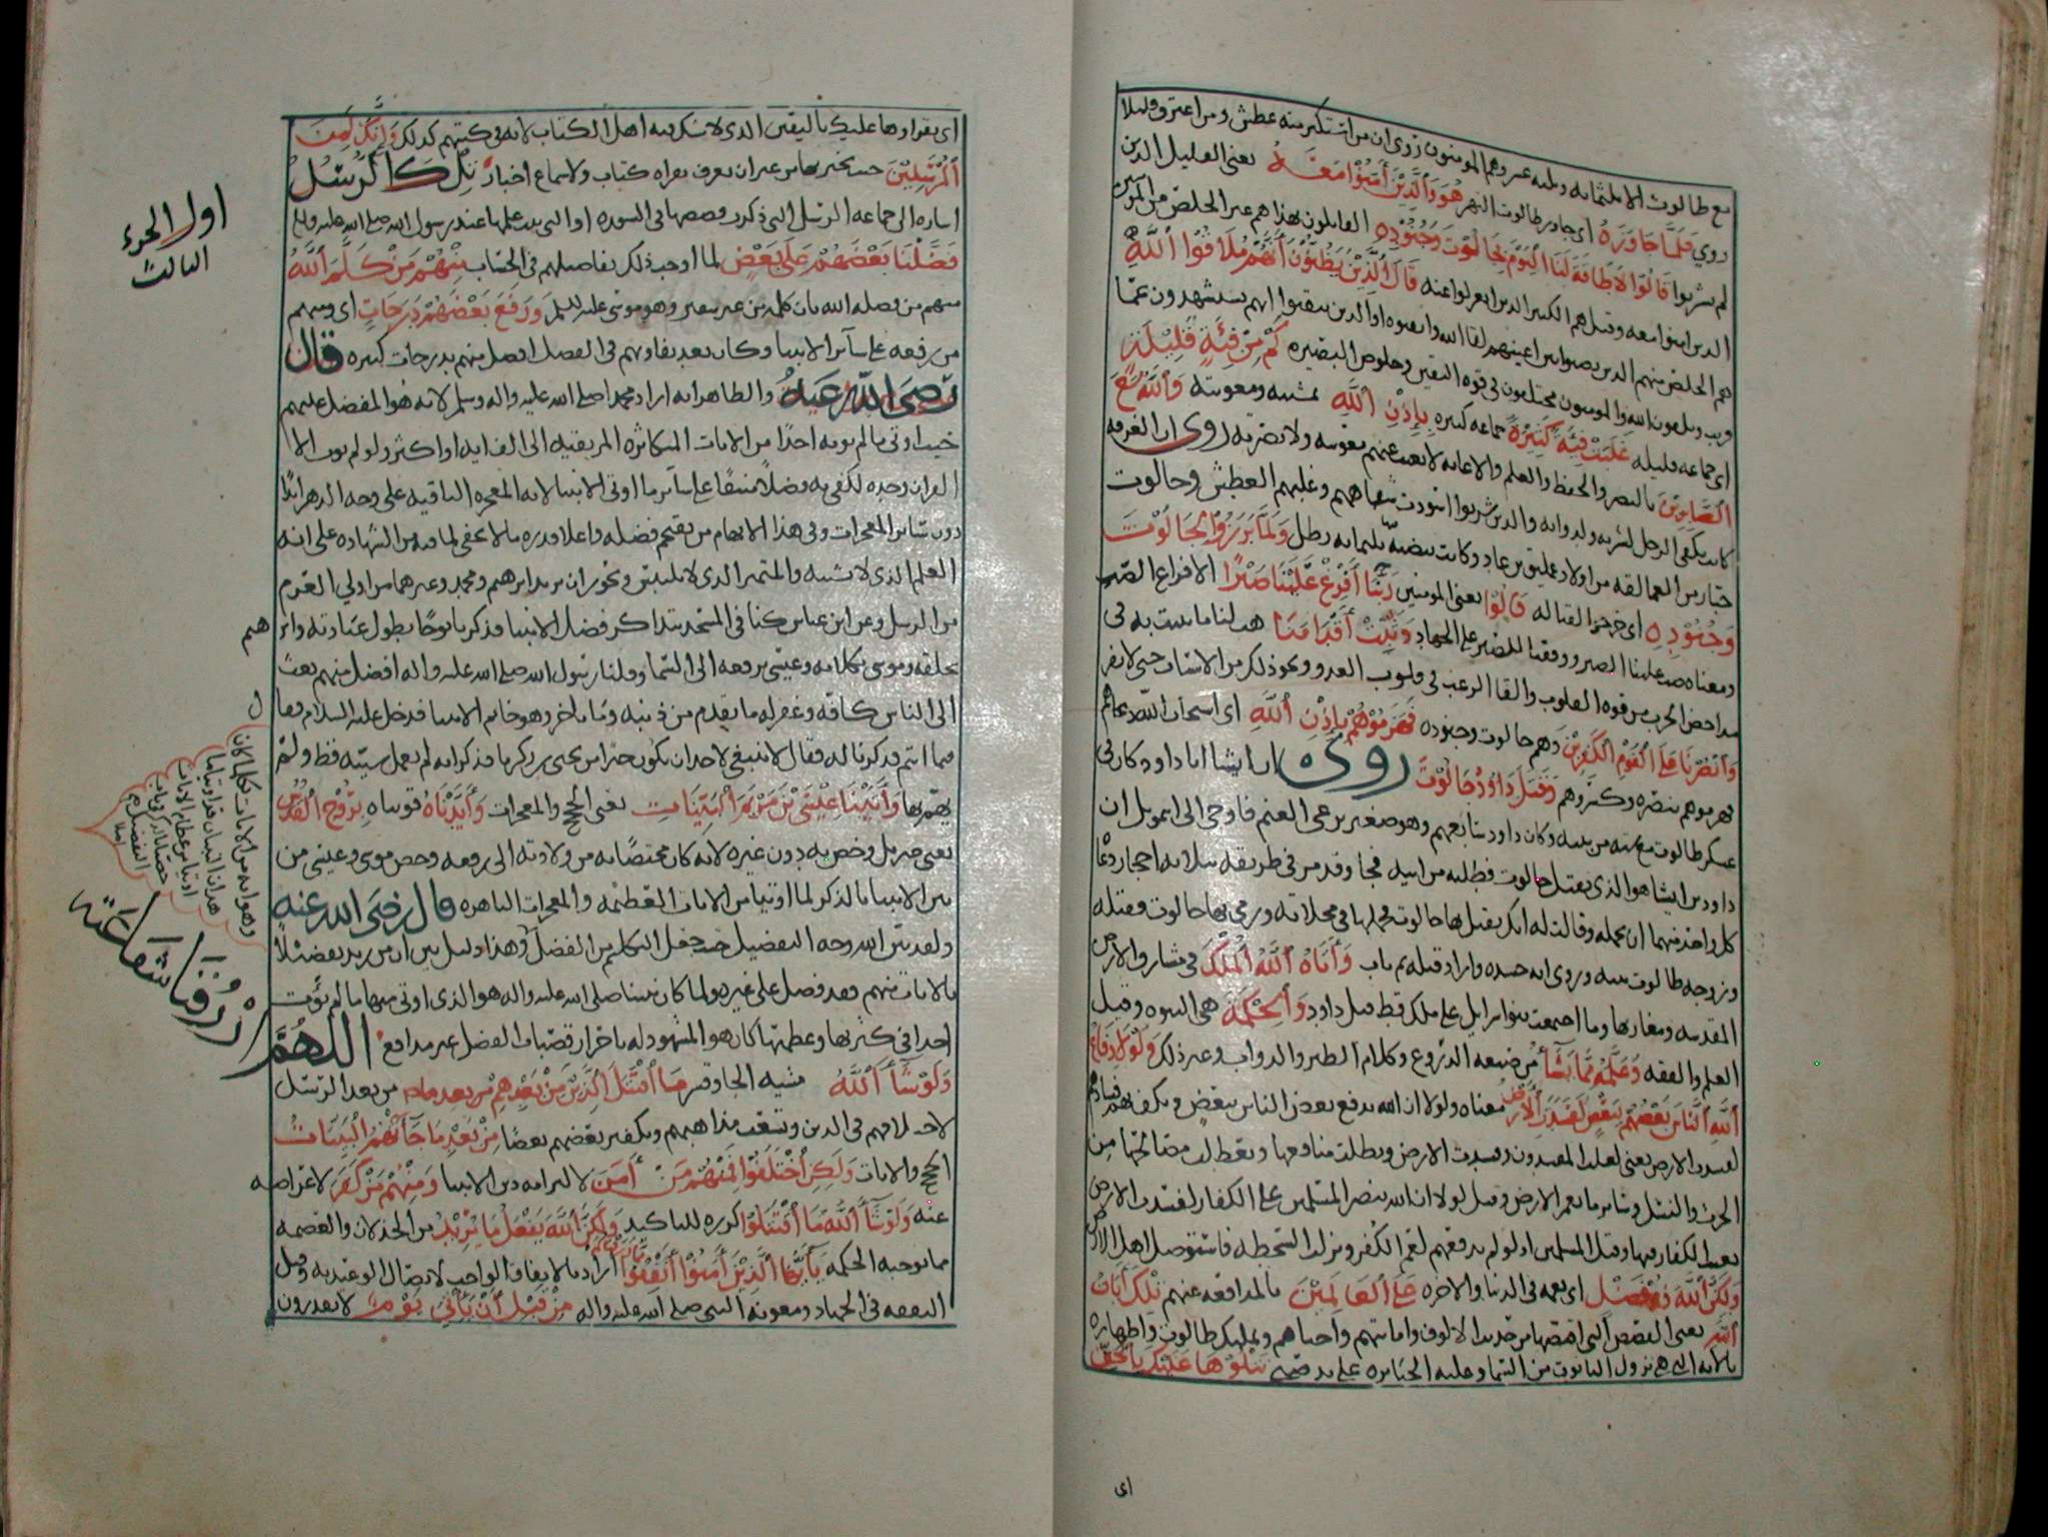 مع طالوت الا ثلثمائه وثلثه عشر وهم المومنون روي ان من استكثر منه عطش ومن اغترف قليلا
روي فَلَمَّا جَاوَزَهُ اى جاوز طالوت النهر هُوَ وَالَّذِيْنَ أَمَنُوْا مَعَهُ يعنى القليل الذين
لم يشربوا قَالُوْا لَاطَاقَةَ لَنَا الْيَوْمَ بِجَالُوْتَ وَجُنُوْدِهِ القائلون هذا هم غير الخلص من المومنين
الذين امنوا معه وقيل هم الكثير الذين انعزلوا عنه قَالَ الَّذِيْنَ يَظُنُّوْنَ أَنَّهُمْ مُلَاقُوْا اللَّهِ
هم الخلص منهم الذين نصبوا بين اعينهم لقا الله وايقنوه او الذين تيقنوا انهم يستشهدون عمّا
قريب ويلقون الله والمومنون مختلفون فى قوه اليقين وخلوص البصيره كَمْ مِّنْ فِئَةٍ قَلِيْلَةٍ
اى جماعه قليله غَلَبَتْ فِئَةً كَثِيْرَةً جماعه كثيره بِإِذْنِ اللَّهِ بمشيته ومعونته وَاللَّهُ مَعَ
الصَّابِرِيْنَ بالنصر والحفظ والعلم والاعانه لا يغيب عنهم بقوسه ولا نصرته روى ان الغرفه
كانت تكفى الرجل لشربه ولدوابه والذين شربوا اسودت شفاههم وغلبهم العطش وجالوت
جبار من العمالقه من اولاد عمليق بن عاد وكانت بيضته ثلثمايه رطل وَلَمَّا بَرَزُوْا لِجَالُوْتَ
وَجُنُوْدِهِ اى خرجوا لقتاله قَالُوْا يعنى المومنين رَبَّنَا أَفْرِغْ عَلَيْنَا صَبْرًا الافراغ الصب
ومعناه صب علينا الصبر ووفقنا للصبر على الجهاد وَثَبِّتْ أَقْدَامَنَا هب لنا ما نثبت به فى
مداحض الحرب من قوه القلوب والقا الرعب فى قلوب العدو ونحو ذلك من الاسباب حتى لا نفر
وَانْصُرْنَا عَلَى الْقَوْمِ الْكَفِرِيْنَ وهم جالوت وجنوده فَهَزَمُوْهُمْ بِإِذْنِ اللَّهِ اى استجاب الله دعاهم
فهزموهم بنصره وكسروهم وَقَتَلَ دَاوُدُ جَالُوْتَ روى ان ايشا ابا داود كان فى
عسكر طالوت مع سته من بنيه وكان داود سابعهم وهو صغير يرعى الغنم فاوحى الى اشمويل ان
داود بن ايشا هو الذى يقتل جالوت فطلبه من ابيه فجا وقد مر فى طريقه بثلاثه احجار دعا
كل واحد منهما ان يحمله وقالت له انك تقتل بنا جالوت فحملها فى مخلاته ورمى بها جالوت فقتله
وزوجه طالوت بنته وروى انه حسده واراد قتله ثم تاب وَأَتَاهُ اللَّهُ الْمُلْكَ فى مشارق الارض
المقدسه ومغاربها وما اجتمعت بنوا سرايل على ملك قط قبل داود وَالْحِكْمَةَ هى النبوه وقيل
العلم والفقه وَعَلَّمَهُ مِمَّا يَشَآءُ من صنعه الدروع وكلام الطير والدواب وغير ذلك وَلَوْلَا دِفَاعُ
اللَّهِ النَّاسَ بَعْضَهُمْ بِبَعْضٍ لَفَسَدَتِ الْأَرْضُ معناه ولولا ان الله يدفع بعض الناس ببعض ويكف بهم فسادهم
لفسدت الارض يعنى لغلب المفسدون وفسدت الارض وبطلت منافعها وتعطلت مصالحها من
الحرث والنسل وساير ما يعمر الارض وقيل لولا ان الله ينصر المسلمين على الكفار لفسدت الارض
بعبث الكفار فيها وقتل المسلمين او لو لم يدفعهم لعم الكفر ونزلت السخطه فاستوصل اهل الارض
وَلَكِنَّ اللَّهَ ذُوْ فَضْلٍ اى نعمه فى الدنيا والاخره عَلَى الْعَالَمِيْنَ بالمدافعه عنهم تِلْكَ أَيَاتُ
اللَّهِ يعنى القصص التى اقتصها من حديث الالوف واماتتهم واحياهم وتمليك طالوت واظهاره
بالايه التى هى نزول التابوت من السما وغلبه الجبابره على يد صبى نَتْلُوْهَا عَلَيْكَ بِالْحَقِّ
اى
اى يقراوها عليك باليقين الذى لا يشك فيه اهل الكتاب لانه فى كتبهم كذلك وَإِنَّكَ لَمِنَ
الْمُرْسَلِيْنَ حيث تخبر بها من غير ان تعرف بقراه كتاب ولا سماع اخبار تِلْكَ الرُّسُلُ
اشاره الى جماعه الرسل التى ذكرت قصصها فى السوره او التى ثبت علمها عند رسول الله صلى الله عليه واله
فَضَّلْنَا بَعْضَهُمْ عَلَى بَعْضٍ لما اوجب ذلك تفاضلهم فى الحسنات مِنْهُمْ مَنْ كَلَّمَ اللَّهُ
منهم من فضله الله بان كلمه من غير سفير وهو موسى عليه السلم وَرَفَعَ بَعْضَهُمْ دَرَجَاتٍ اى ومنهم
من رفعه على سآئر الانبيا وكان بعد تفاوتهم فى الفضل افضل منهم بدرجات كثيره قال
رضى الله عنه والظاهر انه اراد محمد اصلى الله عليه واله وسلم لانه هو المفضل عليهم
حيث اوتى ما لم يوته احدًا من الايات المتكاثره المرتقيه الى الف ايه او اكثر ولو لم يوت الا
القران وحده لكفى به فضلًا منيفًا على سآئر ما اوتى الانبيا لانه المعجزه الباقيه على وجه الدهر ابدًا
دون سائر المعجزات وفى هذا الابهام من تفخيم فضله واعلا قدره ما لا يخفى لما فيه من الشهاده على انه
العلم الذى لا يشتبه والمتميز الذى لا يلتبس ويجوز ان يريد ابرهيم ومحمد وغيرهما من اولى العزم
من الرسل وعن ابن عباس كنا فى المسجد نتذاكر فضل الانبيا فذكرنا نوحًا بطول عبادته وابر
هيم
بخلقه وموسى بكلامه وعيسى برفعه الى السما وقلنا رسول الله صلى الله عليه واله افضل منهم بعث
الى الناس كافه وغفر له ما تقدم من ذنبه وما تاخر وهو خاتم الانبيا فدخل عليه السلام فقا
ل
فيما انتم فذكرنا له فقال لا ينبغى لاحد ان يكون خيرا من يحيى بن زكريا فذكر انه لم يعمل سيئه قط ولم
يهم بها وَأَتَيْنَا عِيْسَى بْنَ مَرْيَمَ الْبَيِّنَاتِ يعنى الحجج والمعجزات وَأَيَّدْنَاهُ قويناه بِرُوْحِ الْقُدُسِ
يعنى جبريل وخص به دون غيره لانه كان مختصًا به من ولادته الى رفعه وخص موسى وعيسى من
بين الانبيا بالذكر لما اوتيا من الايات العظيمه والمعجزات الباهره قال رضى الله عنه
ولقد بين الله وجه التفضيل حيث جعل التكليم من الفضل وهذا دليل بين ان من زيد تفضيلًا
بالايات منهم فقد فضل على غيره ولما كان نبينا صلى الله عليه واله هو الذى اوتى منها ما لم يؤت
احدا فى كثرتها وعظمتها كان هو المشهود له باحراز قصبات الفضل غير مدافع اللهم
ارزقنا شفاعته
وَلَوْ شَآءَ اللَّهُ مشيه الجا وقسر مَا اقْتَتَلَ الَّذِيْنَ مِنْ بَعْدِهِمْ من بعد الرسل
لاختلافهم فى الدين وتشعب مذاهبهم وتكفير بعضهم بعضًا مِنْ بَعْدِ مَا جَآءَتْهُمُ الْبَيِّنَاتُ
الحجج والايات وَلَكِنِ اخْتَلَفُوْا فَمِنْهُمْ مَنْ أَمَنَ لالتزامه دين الانبيا وَمِنْهُمْ مَنْ كَفَرَ لاعراضه
عنه وَلَوْ شَآءَ اللَّهُ مَا اقْتَتَلُوْا كرره للتاكيد وَلَكِنَّ اللَّهَ يَفْعَلُ مَا يُرِيْدُ من الخذلان والعصمه
مما توجبه الحكمه يَأَيُّهَا الَّذِيْنَ أَمَنُوْا أَنْفِقُوْا مِمَّا رَزَقْنَاكُمْ اراد الانفاق الواجب لاتصال الوعيد به وقيل
النفقه فى الجهاد ومعونه النبى صلى الله عليه واله مِنْ قَبْلِ أَنْ يَأْتِيَ يَوْمٌ لا تقدرون
اول الجزء
الثالث